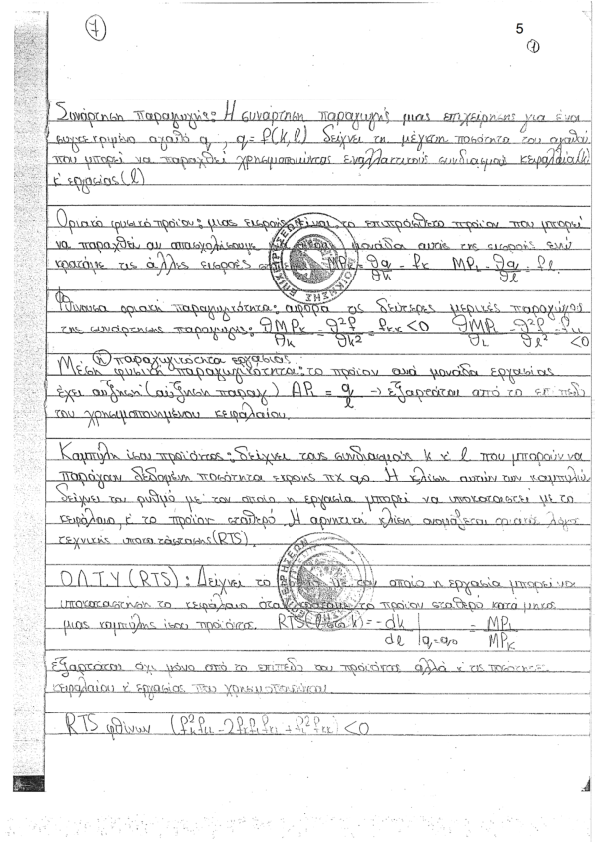 7
5
1
Συνάρτηση παραγωγής: Η συνάρτηση παραγωγής μιας επιχείρησης για ένα
συγκεκριμένο αγαθό q, q = f(k, l) δείχνει τη μέγιστη ποσότητα του αγαθού
που μπορεί να παραχθεί χρησιμοποιώντας εναλλακτικούς συνδιασμούς κεφαλαίου(k)
κ' εργασίας (l)
Οριακό φυσικό προϊόν: μιας εισροής είναι το επιπρόσθετο προϊόν που μπορεί
να παραχθεί αν απασχολήσουμε μονάδα αυτής της εισροής ενώ
κρατάμε τις άλλες εισροές MPk = ∂q/∂k = fk MPl = ∂q/∂l = fl.
Φθίνουσα οριακή παραγωγικότητα: αφορά τις δεύτερες μερικές παραγώγους
της συνάρτησης παραγωγής: ∂MPk/∂k = ∂²f/∂k² = fkk < 0 ∂MPl/∂l = ∂²f/∂l² = fll < 0
ή παραγωγικότητα εργασίας
Μέση φυσική παραγωγικότητα: το προϊόν ανά μονάδα εργασίας
έχει αύξηση (αύξηση παραγ) APl = q/l → εξαρτάται από το επίπεδο
του χρησιμοποιημένου κεφαλαίου.
Καμπύλη ίσου προϊόντος: δείχνει τους συνδιασμούς k κ' l που μπορούν να
παράγουν δεδομένη ποσότητα εκροής πχ q₀. Η κλίση αυτών των καμπυλών
δείχνει τον ρυθμό με τον οποίο η εργασία μπορεί να υποκαταστεί με το
κεφάλαιο, κ' το προϊόν σταθερό. Η αρνητική κλίση ονομάζεται οριακός λόγος
τεχνικής υποκατάστασης (RTS).
Ο.Λ.Τ.Υ (RTS): Δείχνει το με τον οποίο η εργασία μπορεί να
υποκαταστήση το κεφάλαιο όταν κρατάμε το προϊόν σταθερό κατά μήκος
μιας καμπύλης ίσου προϊόντος. RTS(l στο k) = -dk/dl |q=q₀ = MPl/MPk
εξαρτάται όχι μόνο από το επίπεδο του προϊόντος αλλά κ' τις ποσότητες
κεφαλαίου κ' εργασίας που χρησιμοποιούνται
RTS φθίνων (fk²fll - 2fkflfkl + fl²fkk) < 0